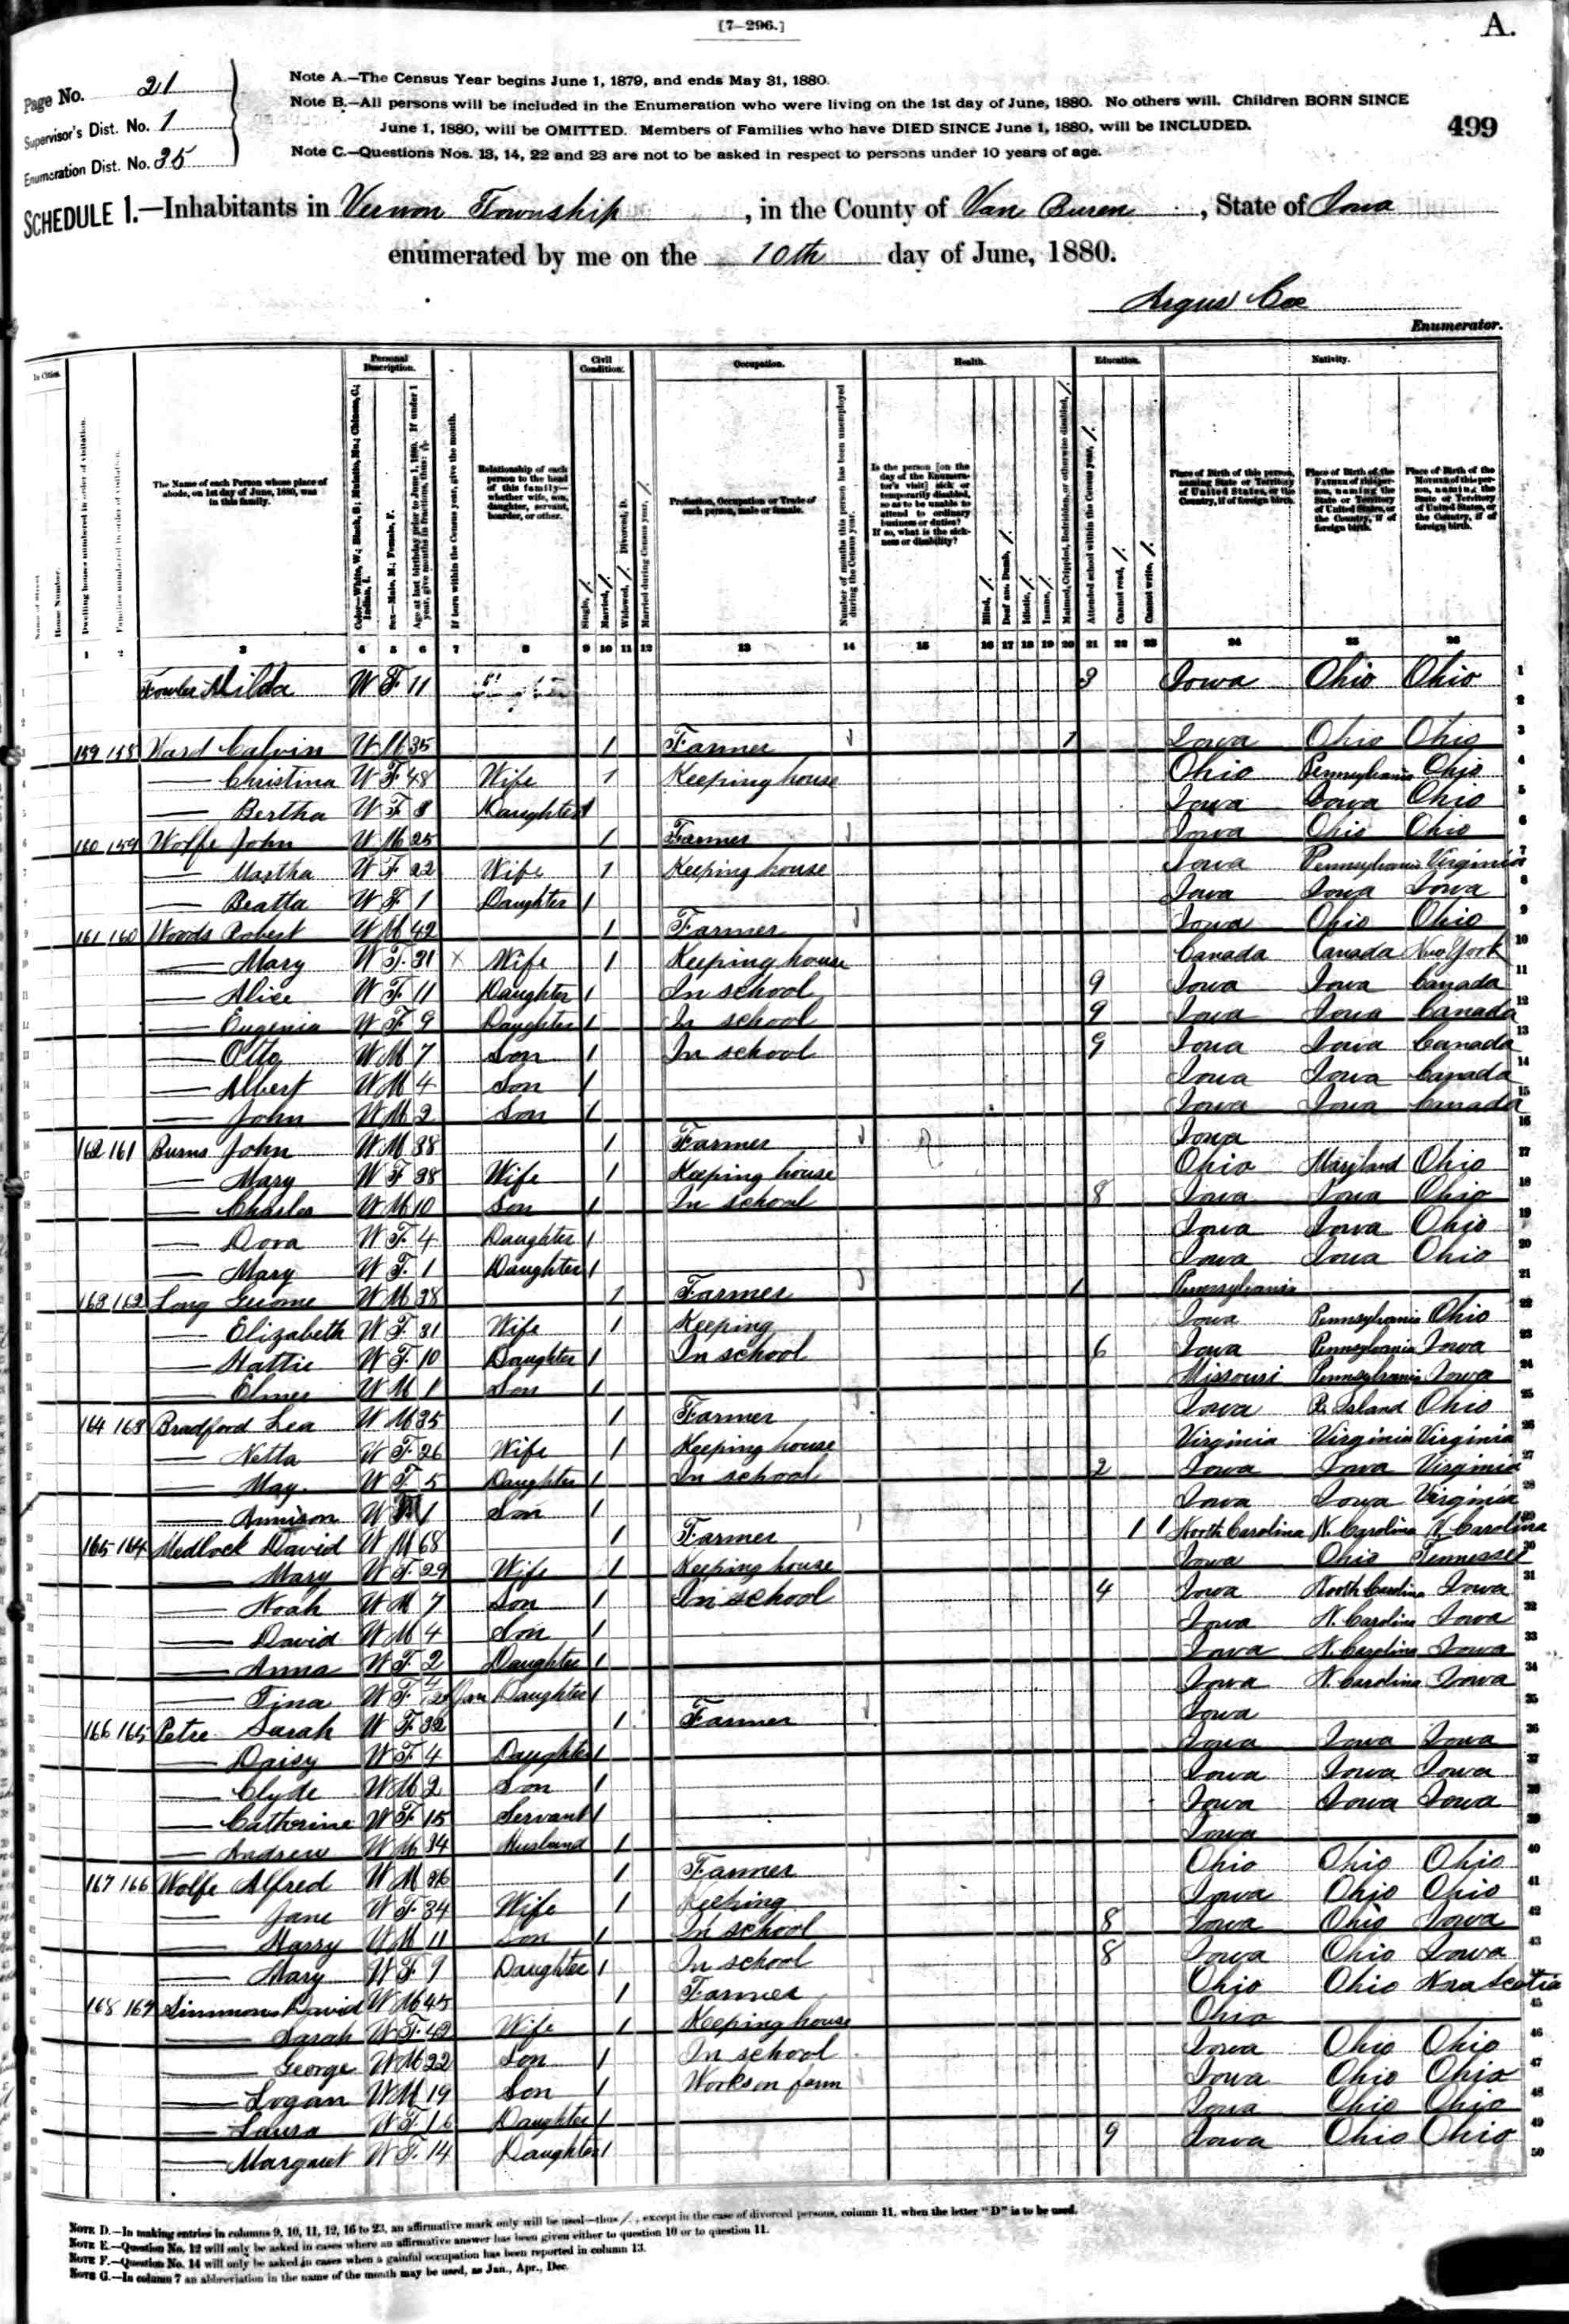 [7-296.]
A.
Page No. 21
Supervisor's Dist. No. 1
Enumeration Dist. No. 35
499
Note A.—The Census Year begins June 1, 1879, and ends May 31, 1880.
Note B.—All persons will be included in the Enumeration who were living on the 1st day of June, 1880. No others will. Children BORN SINCE
June 1, 1880, will be OMITTED. Members of Families who have DIED SINCE June 1, 1880, will be INCLUDED.
Note C.—Questions Nos. 13, 14, 22 and 23 are not to be asked in respect to persons under 10 years of age.
SCHEDULE 1.—Inhabitants in Vernon Township, in the County of Van Buren, State of Iowa
enumerated by me on the 10th day of June, 1880.
Argus Coe
Enumerator.
Personal Description. Civil Condition. Occupation. Health. Education. Nativity.
The Name of each Person whose place of abode, on 1st day of June, 1880, was in this family.
Relationship of each person to the head of this family—whether wife, son, daughter, servant, boarder, or other.
Profession, Occupation or Trade of each person, male or female.
1 2 3 4 5 6 7 8 9 10 11 12 13 14 15 16 17 18 19 20 21 22 23 24 25 26
Fowler Milda W F 11 3 Iowa Ohio Ohio 1
2
159 158 Ward Calvin W M 35 1 Farmer 1 Iowa Ohio Ohio 3
— Christina W F 48 Wife 1 Keeping house Ohio Pennsylvania Ohio 4
— Bertha W F 8 Daughter 1 Iowa Iowa Ohio 5
160 159 Wolfe John W M 25 1 Farmer Iowa Ohio Ohio 6
— Martha W F 22 Wife 1 Keeping house Iowa Pennsylvania Virginia 7
— Beatta W F 1 Daughter 1 Iowa Iowa Iowa 8
161 160 Woods Robert W M 42 1 Farmer Iowa Ohio Ohio 9
— Mary W F 31 X Wife 1 Keeping house Canada Canada New York 10
— Alice W F 11 Daughter 1 In school 9 Iowa Iowa Canada 11
— Eugenia W F 9 Daughter 1 In school 9 Iowa Iowa Canada 12
— Otto W M 7 Son 1 In school 9 Iowa Iowa Canada 13
— Albert W M 4 Son 1 Iowa Iowa Canada 14
— John W M 2 Son 1 Iowa Iowa Canada 15
162 161 Burns John W M 38 1 Farmer Iowa 16
— Mary W F 38 Wife 1 Keeping house Ohio Maryland Ohio 17
— Charles W M 10 Son 1 In school 8 Iowa Iowa Ohio 18
— Dora W F 4 Daughter 1 Iowa Iowa Ohio 19
— Mary W F 1 Daughter 1 Iowa Iowa Ohio 20
163 162 Long Gerome W M 38 1 Farmer 1 Pennsylvania 21
— Elizabeth W F 31 Wife 1 Keeping Iowa Pennsylvania Ohio 22
— Hattie W F 10 Daughter 1 In school 6 Iowa Pennsylvania Iowa 23
— Elmer W M 1 Son 1 Missouri Pennsylvania Iowa 24
164 163 Bradford Lea W M 35 1 Farmer Iowa R. Island Ohio 25
— Netta W F 26 Wife 1 Keeping house Virginia Virginia Virginia 26
— May W F 5 Daughter 1 In school 2 Iowa Iowa Virginia 27
— Annison W M 1 Son 1 Iowa Iowa Virginia 28
165 164 Medlock David W M 68 1 Farmer 1 1 North Carolina N. Carolina N. Carolina 29
— Mary W F 29 Wife 1 Keeping house Iowa Ohio Tennessee 30
— Noah W M 7 Son 1 In school 4 Iowa North Carolina Iowa 31
— David W M 4 Son 1 Iowa N. Carolina Iowa 32
— Anna W F 2 Daughter 1 Iowa N. Carolina Iowa 33
— Tina W F 4/12 Jan Daughter 1 Iowa N. Carolina Iowa 34
166 165 Petre Sarah W F 32 1 Farmer Iowa 35
— Daisy W F 4 Daughter 1 Iowa Iowa Iowa 36
— Clyde W M 2 Son 1 Iowa Iowa Iowa 37
— Catherine W F 15 Servant 1 Iowa Iowa Iowa 38
— Andrew W M 34 Husband 1 Iowa 39
167 166 Wolfe Alfred W M 36 1 Farmer Ohio Ohio Ohio 40
— Jane W F 34 Wife 1 Keeping Iowa Ohio Ohio 41
— Harry W M 11 Son 1 In school 8 Iowa Ohio Iowa 42
— Mary W F 9 Daughter 1 In school 8 Iowa Ohio Iowa 43
168 167 Simmons David W M 45 1 Farmer Ohio Ohio Nova Scotia
— Sarah W F 42 Wife 1 Keeping house Ohio 45
— George W M 22 Son 1 In school Iowa Ohio Ohio 46
— Logan W M 19 Son 1 Works on farm Iowa Ohio Ohio 47
— Laura W F 16 Daughter 1 Iowa Ohio Ohio 48
— Margaret W F 14 Daughter 1 9 Iowa Ohio Ohio 49
50
Note D.—In making entries in columns 9, 10, 11, 12, 16 to 23, an affirmative mark only will be used—thus /, except in the case of divorced persons, column 11, when the letter "D" is to be used.
Note E.—Question No. 12 will only be asked in cases where an affirmative answer has been given either to question 10 or to question 11.
Note F.—Question No. 14 will only be asked in cases when a gainful occupation has been reported in column 13.
Note G.—In column 7 an abbreviation in the name of the month may be used, as Jan., Apr., Dec.